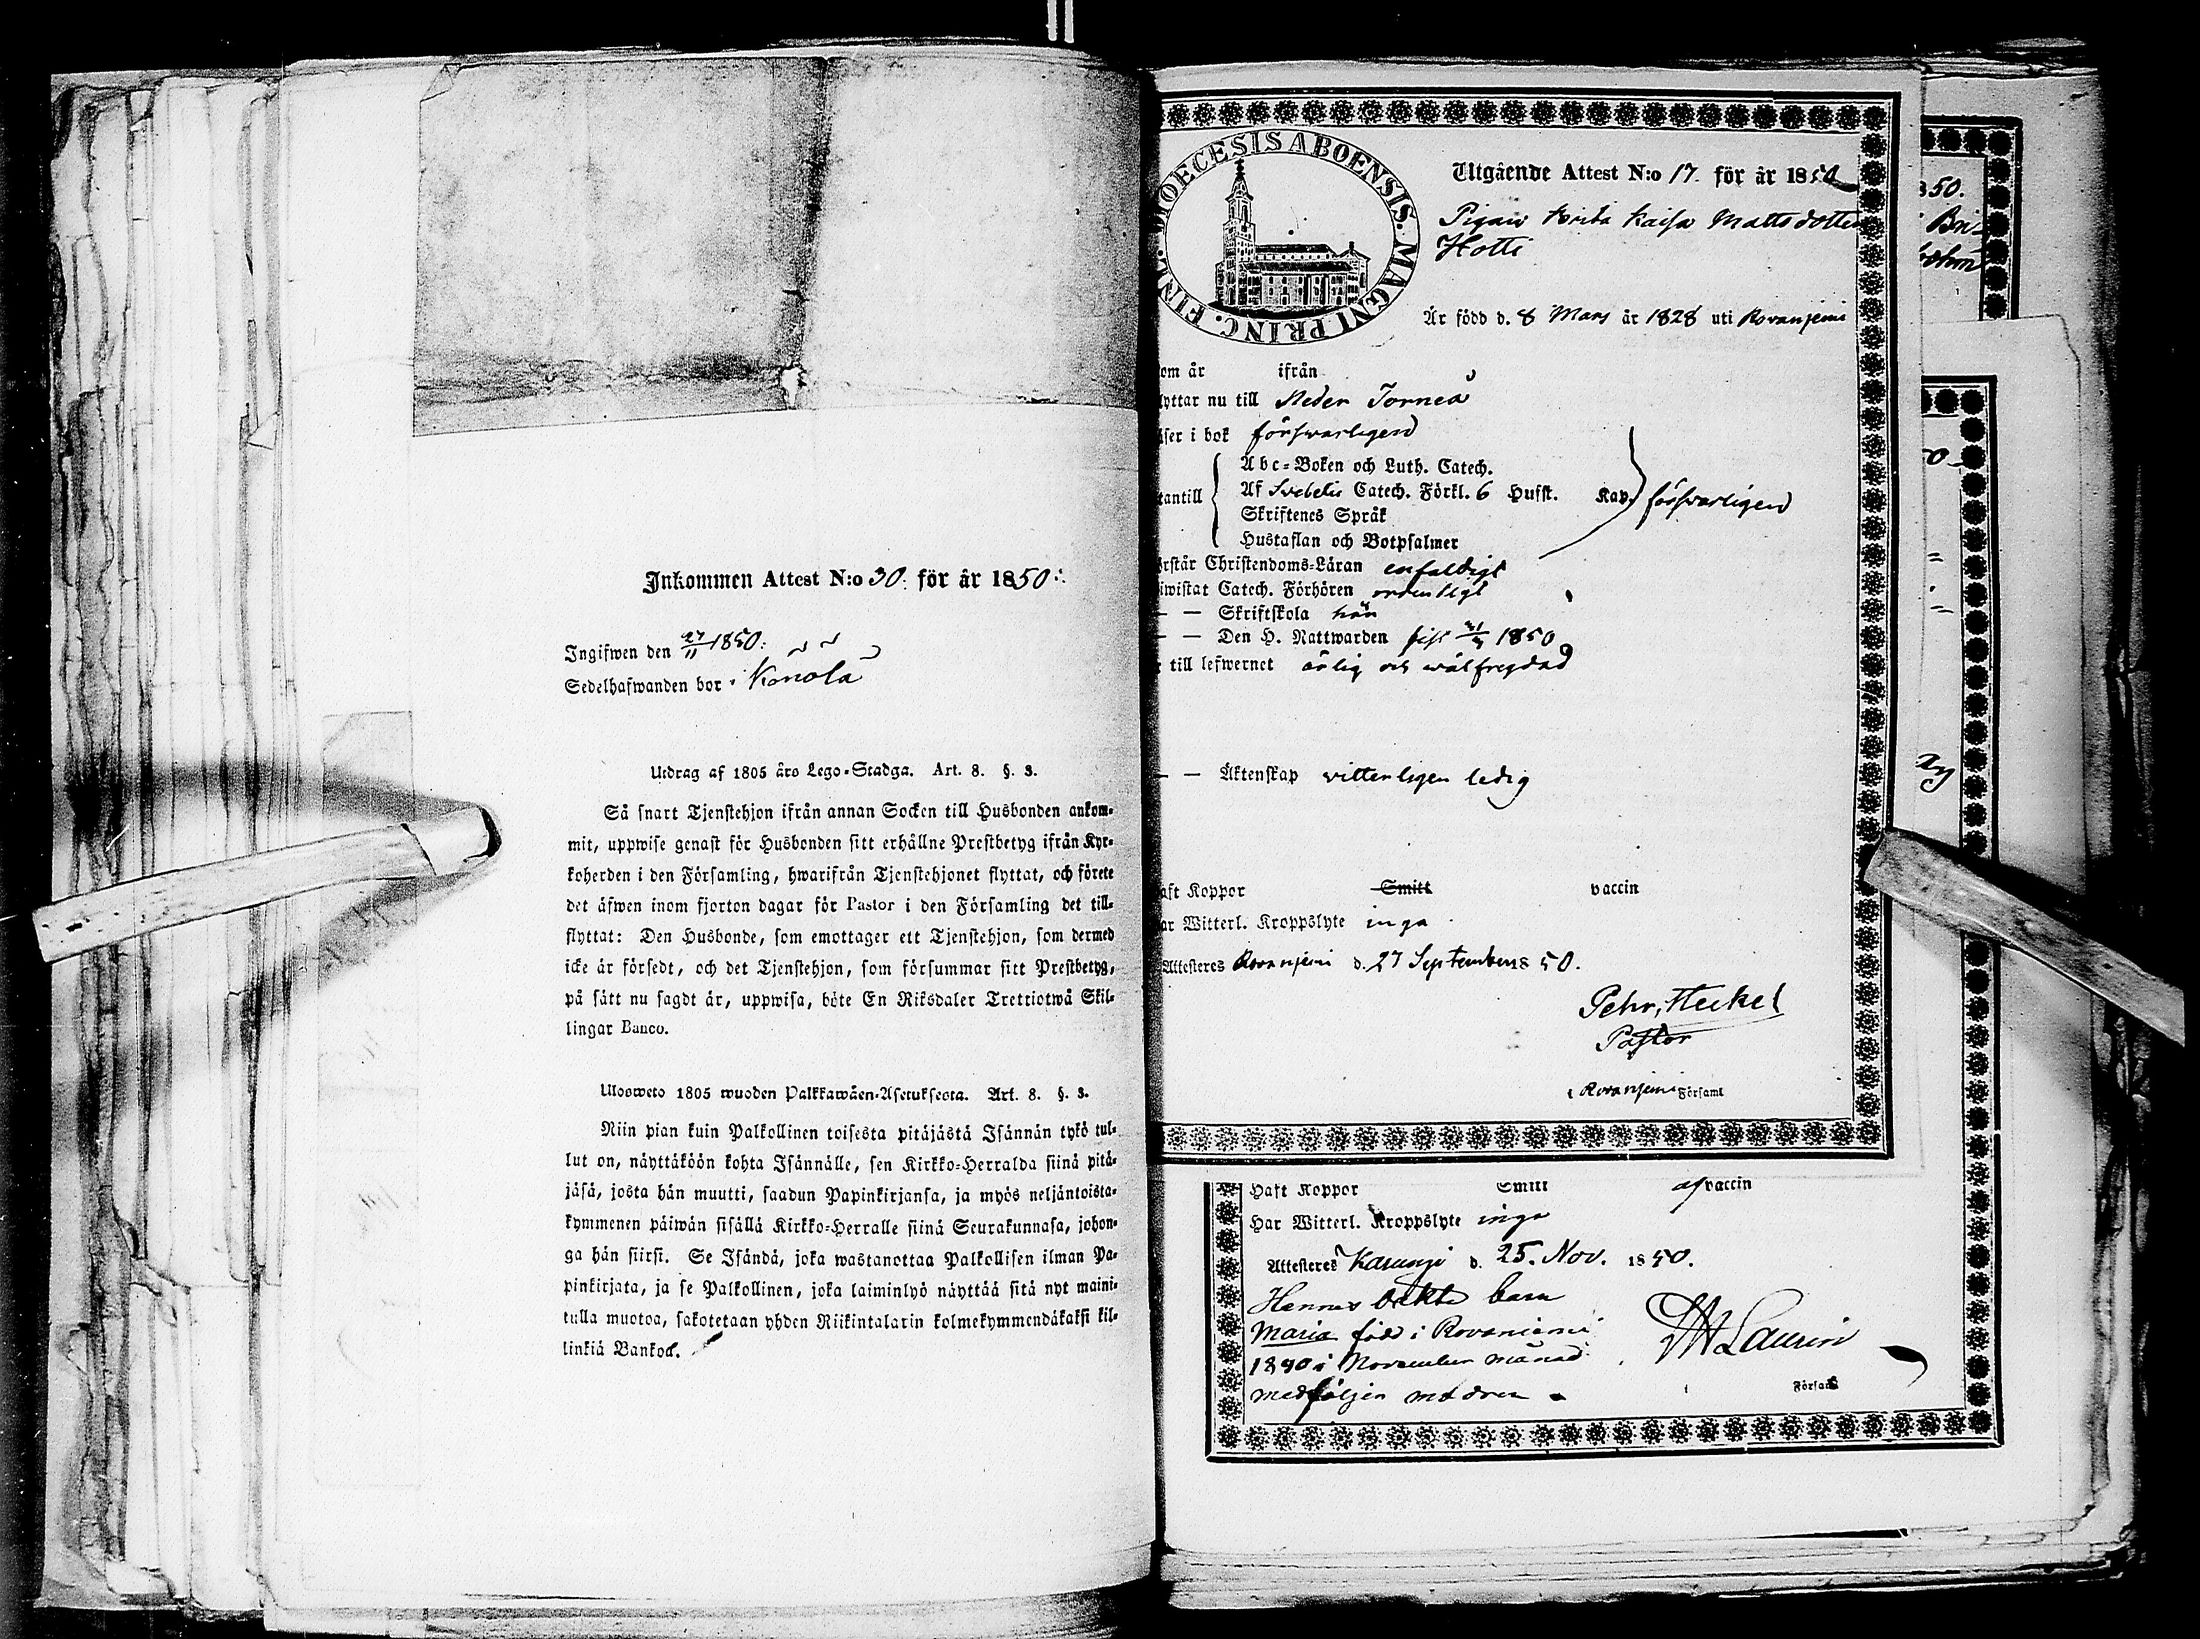 Inkommen Attest N:o 30. för år 1850.
Ingifwen den 27/11 1850.
Sedelhafwanden bor i Könölä
Utdrag af 1805 års Lego-Stadga. Art. 8. §. 3.
Så snart Tjenstehjon ifrån annan Socken till Husbonden ankom-
mit, uppwise genast för Husbonden sitt erhållne Prestbetyg ifrån Kyr-
koherden i den Församling, hwarifrån Tjenstehjonet flyttat, och förete
det äfwen inom fjorton dagar för Pastor i den Församling det till-
flyttat: Den Husbonde, som emottager ett Tjenstehjon, som dermed
icke är försedt, och det Tjenstehjon, som försummar sitt Prestbetyg,
på sätt nu sagdt är, uppwisa, böte En Riksdaler Trettiotwå Skil-
lingar Banco.
Ulosweto 1805 wuoden Palkkawäen-Asetuksesta. Art. 8. §. 3.
Niin pian kuin Palkollinen toisesta pitäjästä Isännän tykö tul-
lut on, näyttäköön kohta Isännälle, sen Kirkko-Herralda siinä pitä-
jäsä, josta hän muutti, saadun Papinkirjansa, ja myös neljäntoista-
kymmenen päiwän sisällä Kirkko-Herralle siinä Seurakunnasa, johon-
ga hän siirsi. Se Isändä, joka wastanottaa Palkollisen ilman Pa-
pinkirjata, ja se Palkollinen, joka laiminlyö näyttää sitä nyt maini-
tulla muotoa, sakotetaan yhden Riikintalarin kolmekymmendäkaksi kil-
linkiä Bankos.
DIOECESIS ABOENSIS. MAGNI PRINC. FINL.
Utgående Attest N:o 17. för år 1850
Pigan Brita Kaisa Mattsdotter
Hotti
Är född d. 8 Mars år 1828 uti Rovanjemi
om är ifrån
lyttar nu till Neder Torneå
äser i bok försvarligen
tantill
Abc-Boken och Luth. Catech.
Af Svebelii Catech. Förkl. 6 Hufst. Kap. försvarligen
Skriftenes Språk
Hustaflan och Botpsalmer
örstår Christendoms-Läran enfaldigt
iwistat Catech. Förhören ordentligt
— — Skriftskola
— — Den H. Nattwarden sist 1850
r till lefwernet ärlig och wälfregdad
— — Äktenskap vitterligen ledig
aft Koppor Smitt vaccin
ar Witterl. Kroppslyte inga
Attesteres Rovanjemi d. 27 September 1850.
Pehr Heikel
Pastor
i Rovanjemi Församl
Haft Koppor Smitt af vaccin
Har Witterl. Kroppslyte inga
Attesteres Karungi d. 25. Nov. 1850.
Hennes oäkta barn
Maria född i Rovaniemi
1840 i November månad
medföljer modren
Laurin
Församl
850.
Bri-